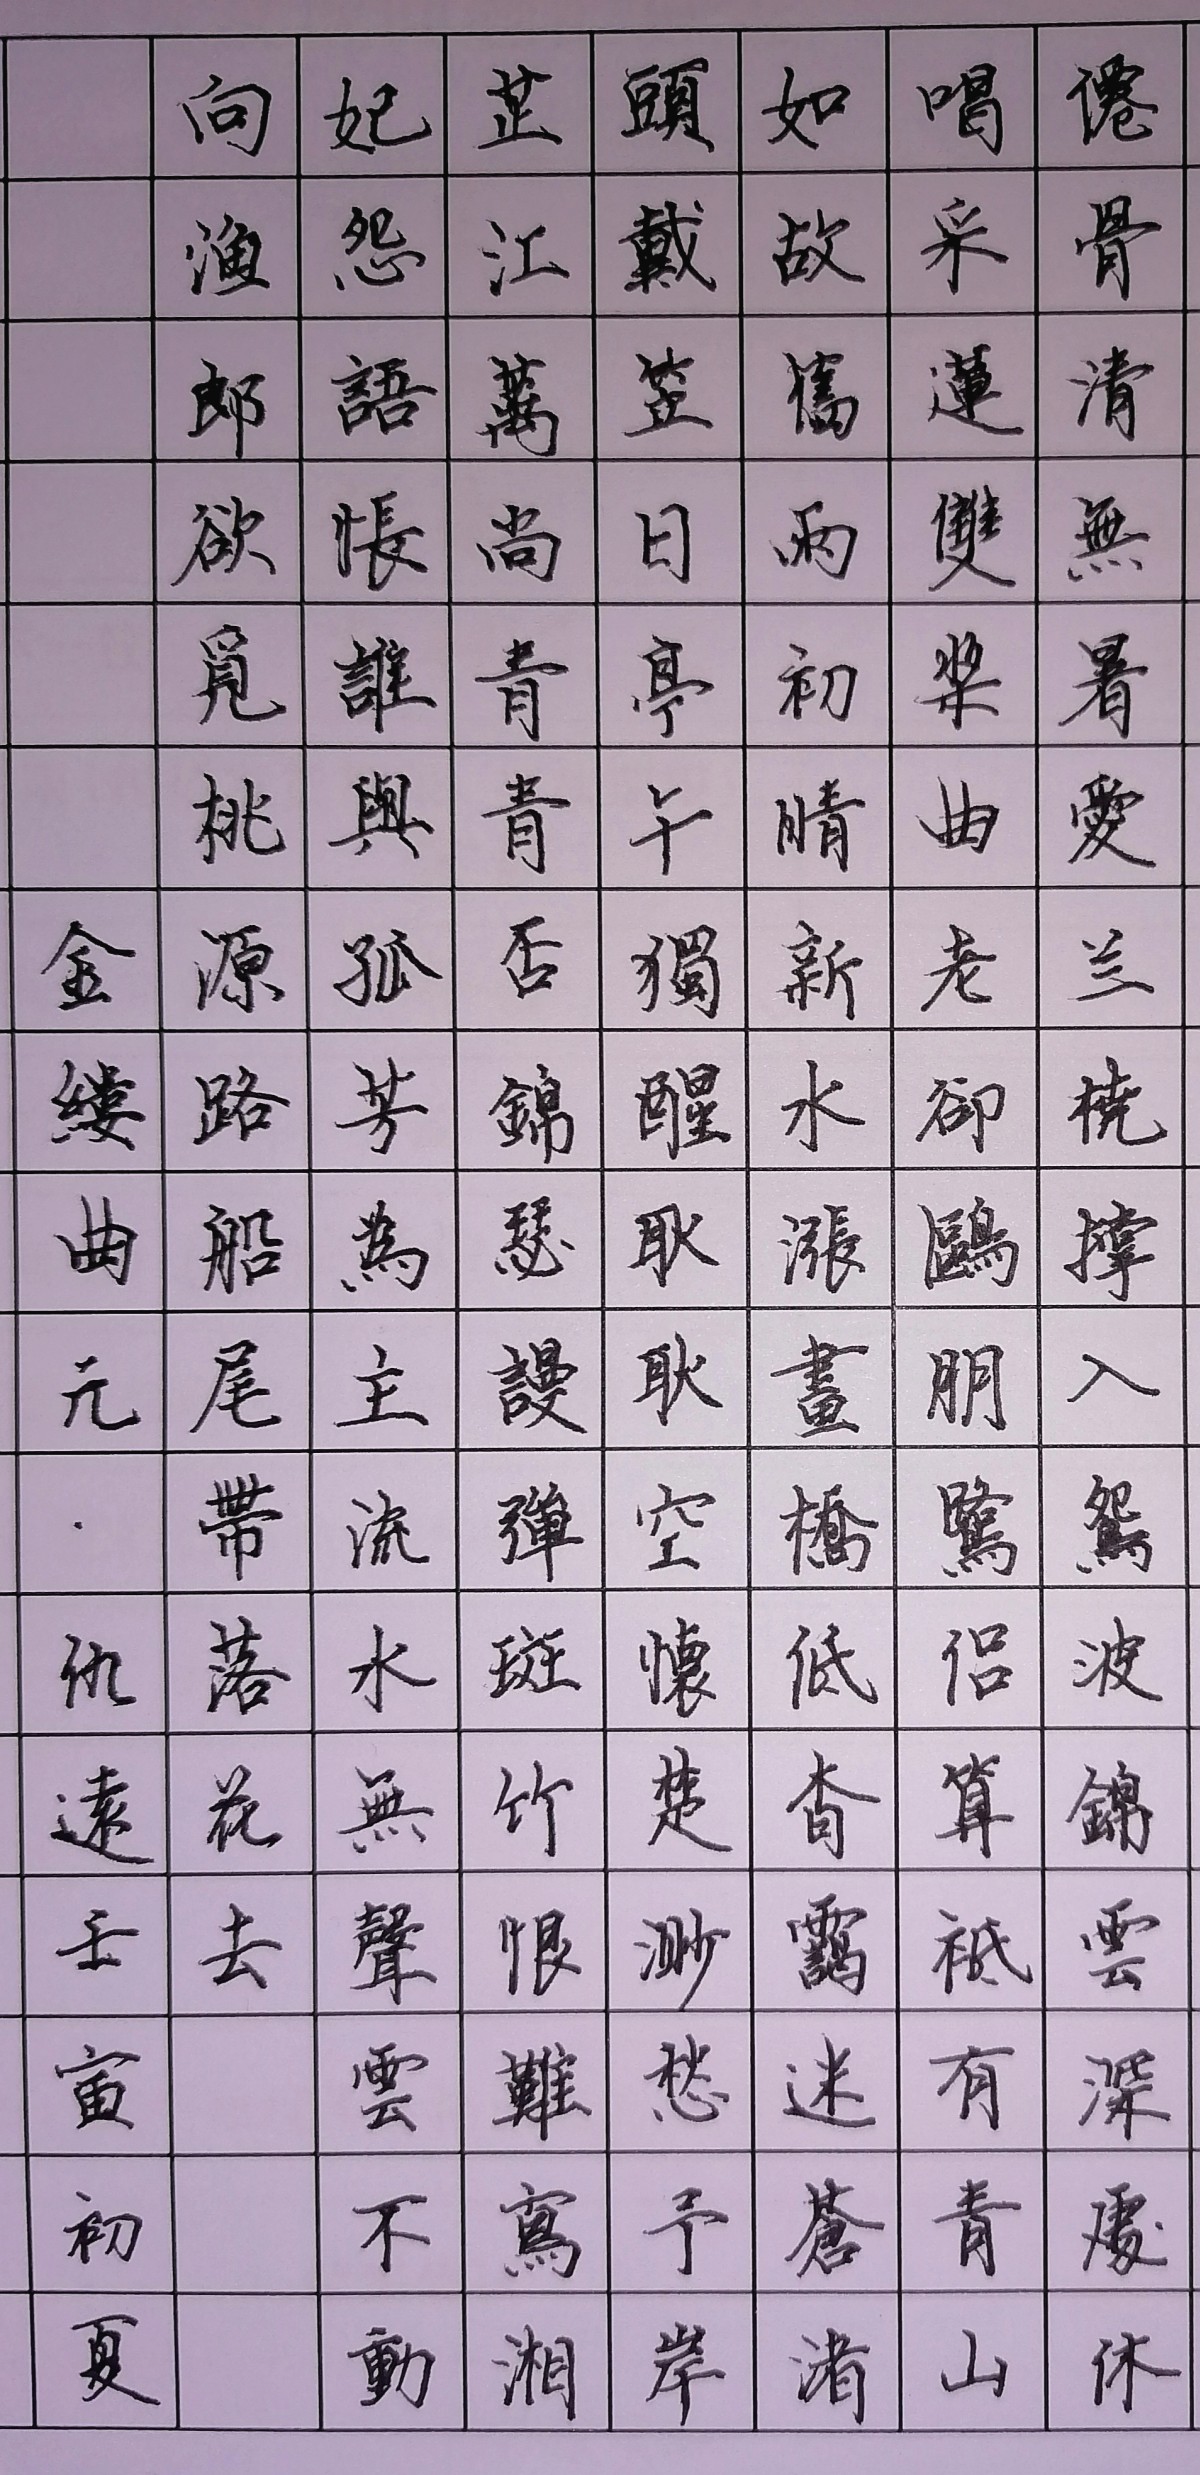 僊骨清無暑愛兰橈撐入鴛波錦雲深處休
唱采蓮雙槳曲老卻鷗朋鷺侶算祗有青山
如故舊雨初晴新水漲畫橋低杳靄迷蒼渚
頭戴笠日亭午獨醒耿耿空懷楚渺愁予岸
芷江蓠尚青青否錦瑟謾彈斑竹恨難寫湘
妃怨語悵誰與孤芳為主流水無聲雲不動
向渔郎欲覓桃源路船尾帶落花去
金縷曲元·仇遠壬寅初夏